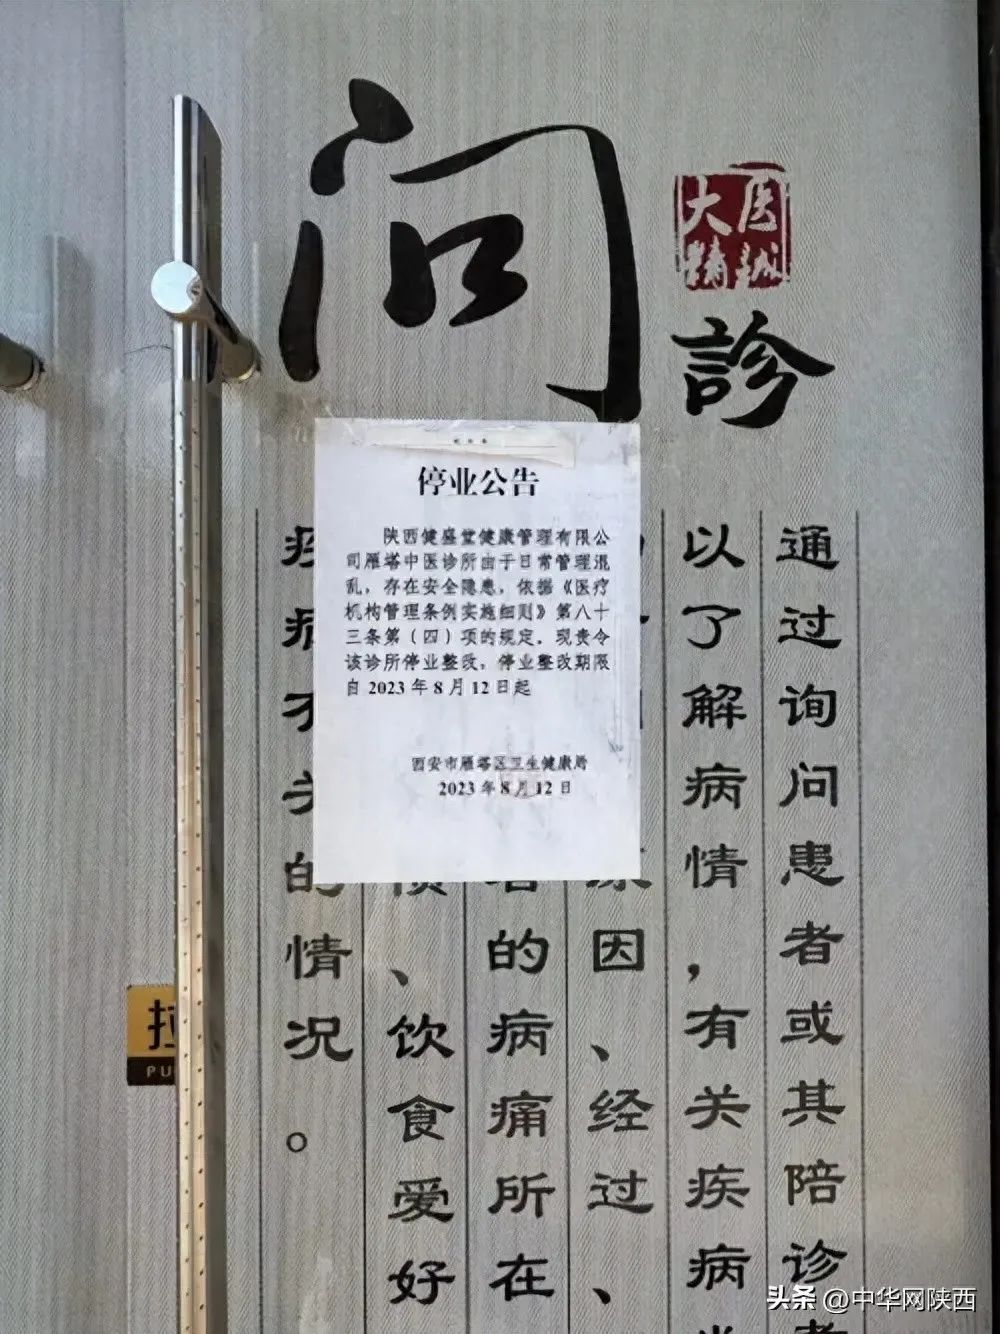 问
診
大医
精誠
停业公告
陕西健盛堂健康管理有限公
司雁塔中医诊所由于日常管理混
乱，存在安全隐患，依据《医疗
机构管理条例实施细则》第八十
三条第（四）项的规定，现责令
该诊所停业整改，停业整改期限
自 2023 年 8 月 12 日起
西安市雁塔区卫生健康局
2023 年 8 月 12 日
通过询问患者或其陪诊者
以了解病情，有关疾病
因、经过、
的病痛所在
、饮食爱好
的情况。
拉
PU
头条 @中华网陕西